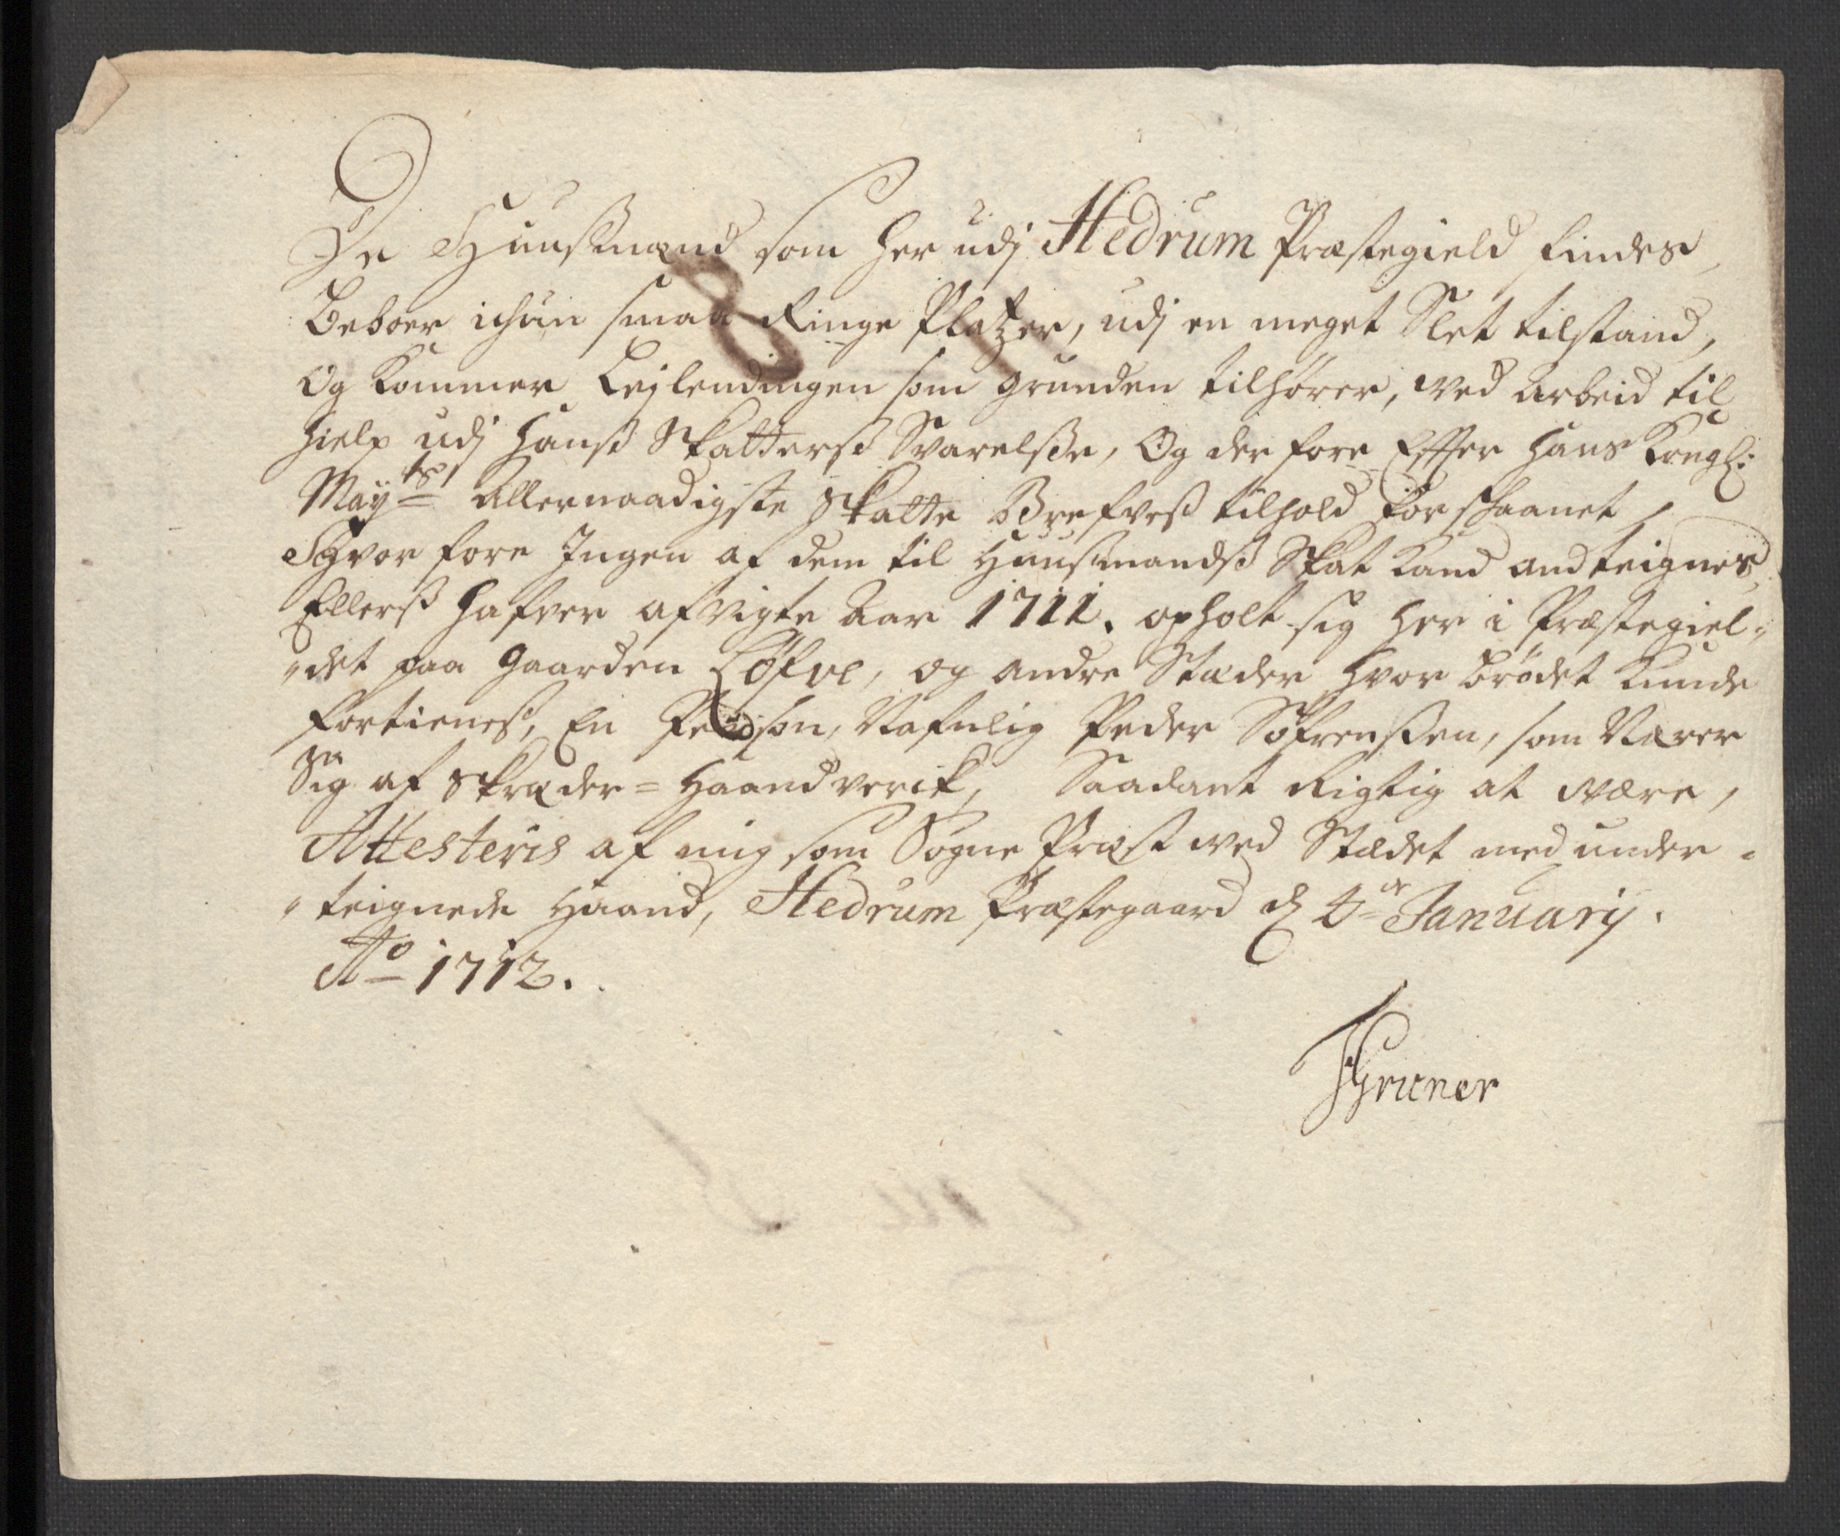 De Huusmænd som her udj Hedrum Præstegield findes,
Beboer ichun smaa Ringe Platzer, udj en meget Slet tilstand,
Og kommer Lejlendingen som grunden tilhører, ved arbeid til
hielp udj hanß Skatterß Svarelße, Og der fore Effter hans Kongl:
May:ts Allernaadigste Skatte Brefveß tilhold forskaanet,
Hvor fore Ingen af dem til Huusmandß Skat kand andteignes
Ellerß hafver afvigte Aar 1711. opholt sig her i Præstegiel„
„det paa gaarden Løfve, og andre Stæder hvor brødet kunde
fortieneß, En Person, Nafnlig Peder Søfrenßen, som Nærer
Sig af Skræder=Haandverck, Saadant Rigtig at være,
Attesteris af mig som Sogne Præst ved Stædet med under„
„teignede Haand, Hedrum Præstegaard d 4de Januarij.
Ao 1712.
HGruner
8